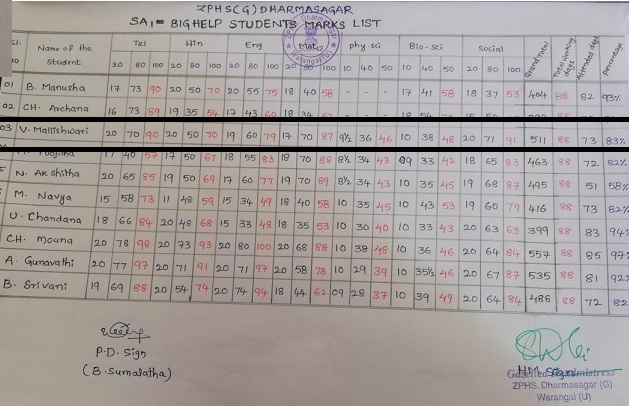 ZPHS(G) DHARMASAGAR
SA1 = BIGHELP STUDENTS MARKS LIST
Name of the Student Tel Hin Eng Mat phy-sci Bio-sci Social Grand Total Total working days Attended days percentage
20 80 100 20 80 100 20 80 100 20 100 10 40 50 10 40 50 20 80 100
01 B. Manusha 17 73 90 20 50 70 20 55 75 18 40 58 - - - 17 41 58 18 37 53 404 88 82 93%
02 CH. Archana 16 73 89 19 35 54 17 43 60 18 34
03 V. Mallishwari 20 70 90 20 50 70 19 60 79 17 70 87 9½ 36 46 10 38 48 20 71 91 511 88 73 83%
Poojitha 17 40 57 17 50 67 18 55 83 18 70 88 8½ 34 43 09 33 42 18 65 83 463 88 72 82%
N. Akshitha 20 65 85 19 50 69 17 60 77 19 70 89 8½ 34 43 10 35 45 19 68 87 495 88 51 58%
M. Navya 15 58 73 11 48 59 15 34 49 18 40 58 10 35 45 10 43 53 19 60 79 416 88 73 82%
U. Chandana 18 66 84 20 48 68 15 33 48 18 35 53 10 30 40 10 33 43 20 63 63 399 88 83 94%
CH. Mouna 20 78 98 20 73 93 20 80 100 20 68 88 10 38 48 10 36 46 20 64 84 557 88 85 97%
A. Gunavathi 20 77 97 20 71 91 20 71 97 20 58 78 10 29 39 10 35½ 46 20 67 87 535 88 81 92%
B. Srivani 19 69 88 20 54 74 20 74 94 18 44 62 09 28 37 10 39 49 20 64 84 488 88 72 82
P.D. Sign
(B. Sumalatha)
HM Sign
Gazetted Headmistress
ZPHS. Dharmasagar (G)
Warangal (U)